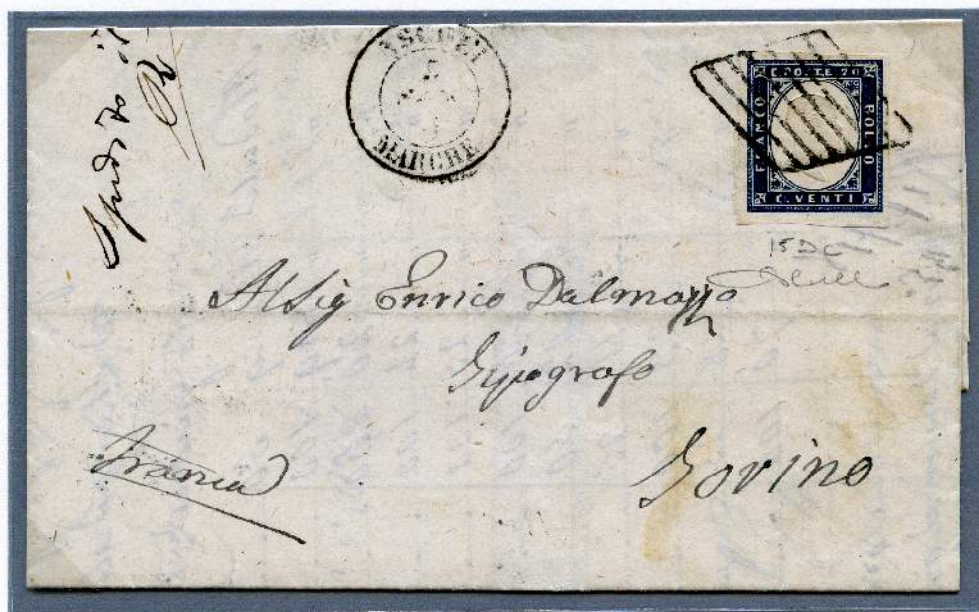 ASCOLI
5
MARCHE
C.POSTE 20
FRANCO
BOLLO
C. VENTI
15 DC
Al Sig Enrico Dalmazzo
Tipografo
Torino
Franca